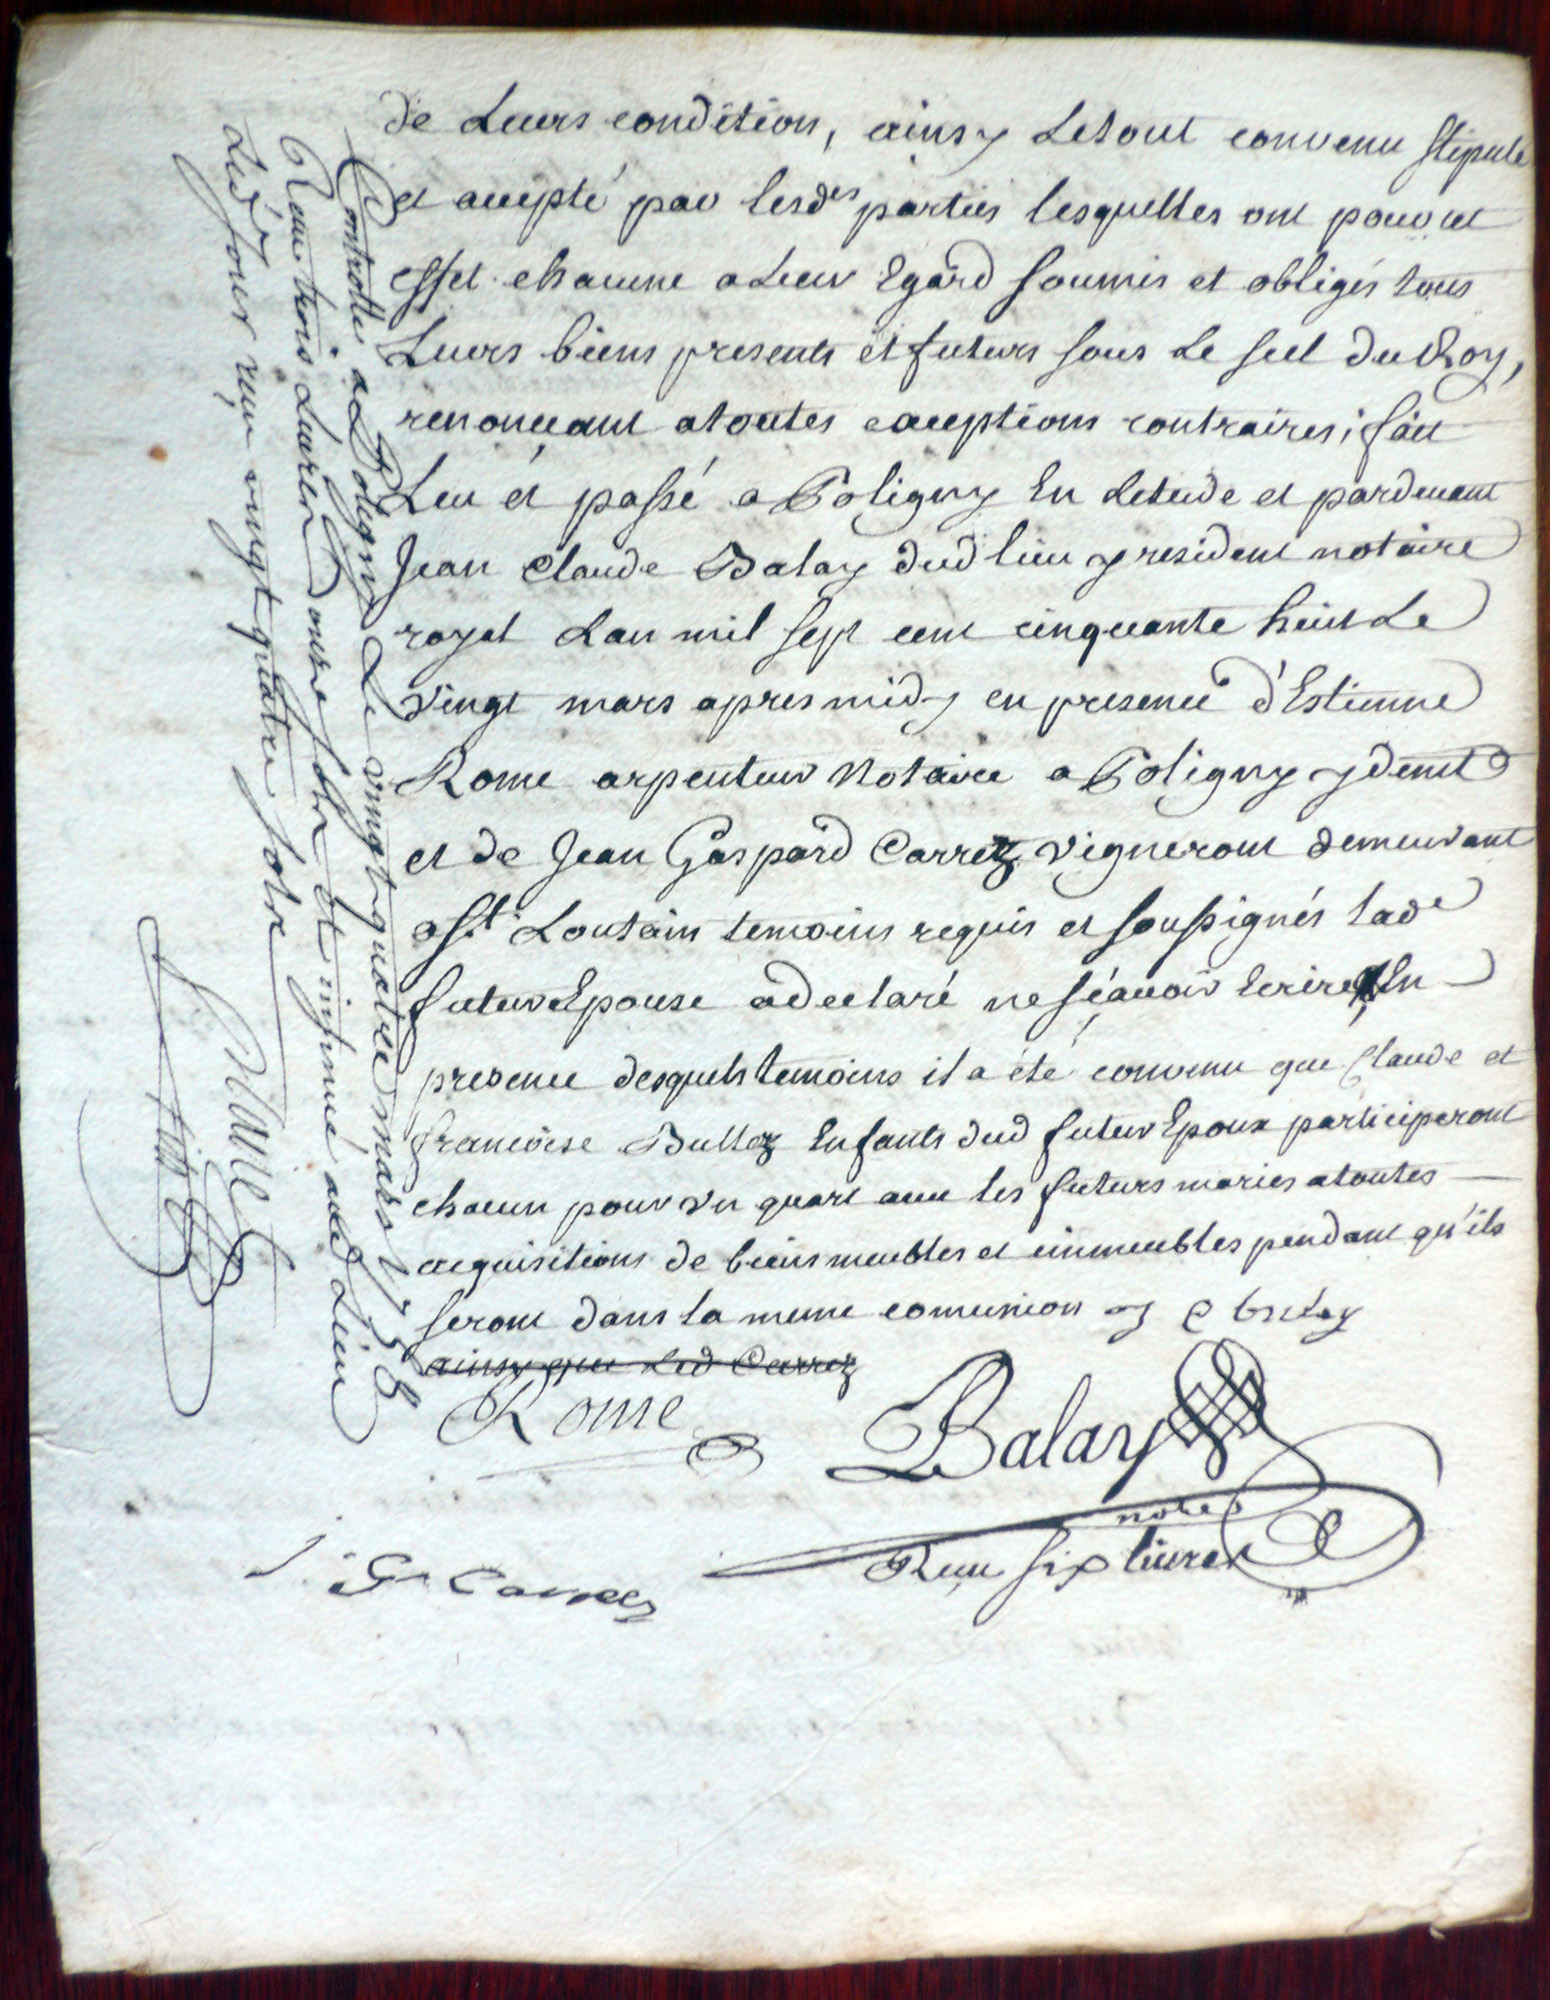 de Leurs condition, ainsy Letout convenu stipulé
et accepté par lesdes parties lesquelles ont pour cet
effet chacune a Leur Egard soumis et obligés tous
Leurs biens presents et futurs sous Le scel du Roy,
renonceant atoutes exceptions contraires; fait
Leu et passé a Poligny En Letude et pardevant
Jean Claude Balay dud lieu y resident notaire
royal Lan mil sept cent cinquante huit Le
vingt mars apres midy en presence d'Estienne
Rome arpenteur Notaire a Poligny y demt
et de Jean Gaspard Carrez vigneront demeurant
a St Loutain temoins requis et soussignés lade
futur Epouse adeclaré ne sçavoir Ecrire En
presence desquels temoins il a été convenu que Claude et
francoise Bullez Enfants dud futur Epoux participeront
chacun pour un quart avec les futurs maries atoutes
acquisitions de biens meubles et immeubles pendant qu'ils
seront dans la meme comunion
ainsy que Led Carrez
Rome
Balay
notre
J G Carrez
Recu six livres
Controllé a Poligny Le vingt quatre mars 1758
Recu trois Livres onze sols et insinué aud Lieu
Led jour reçu vingt quatre sols